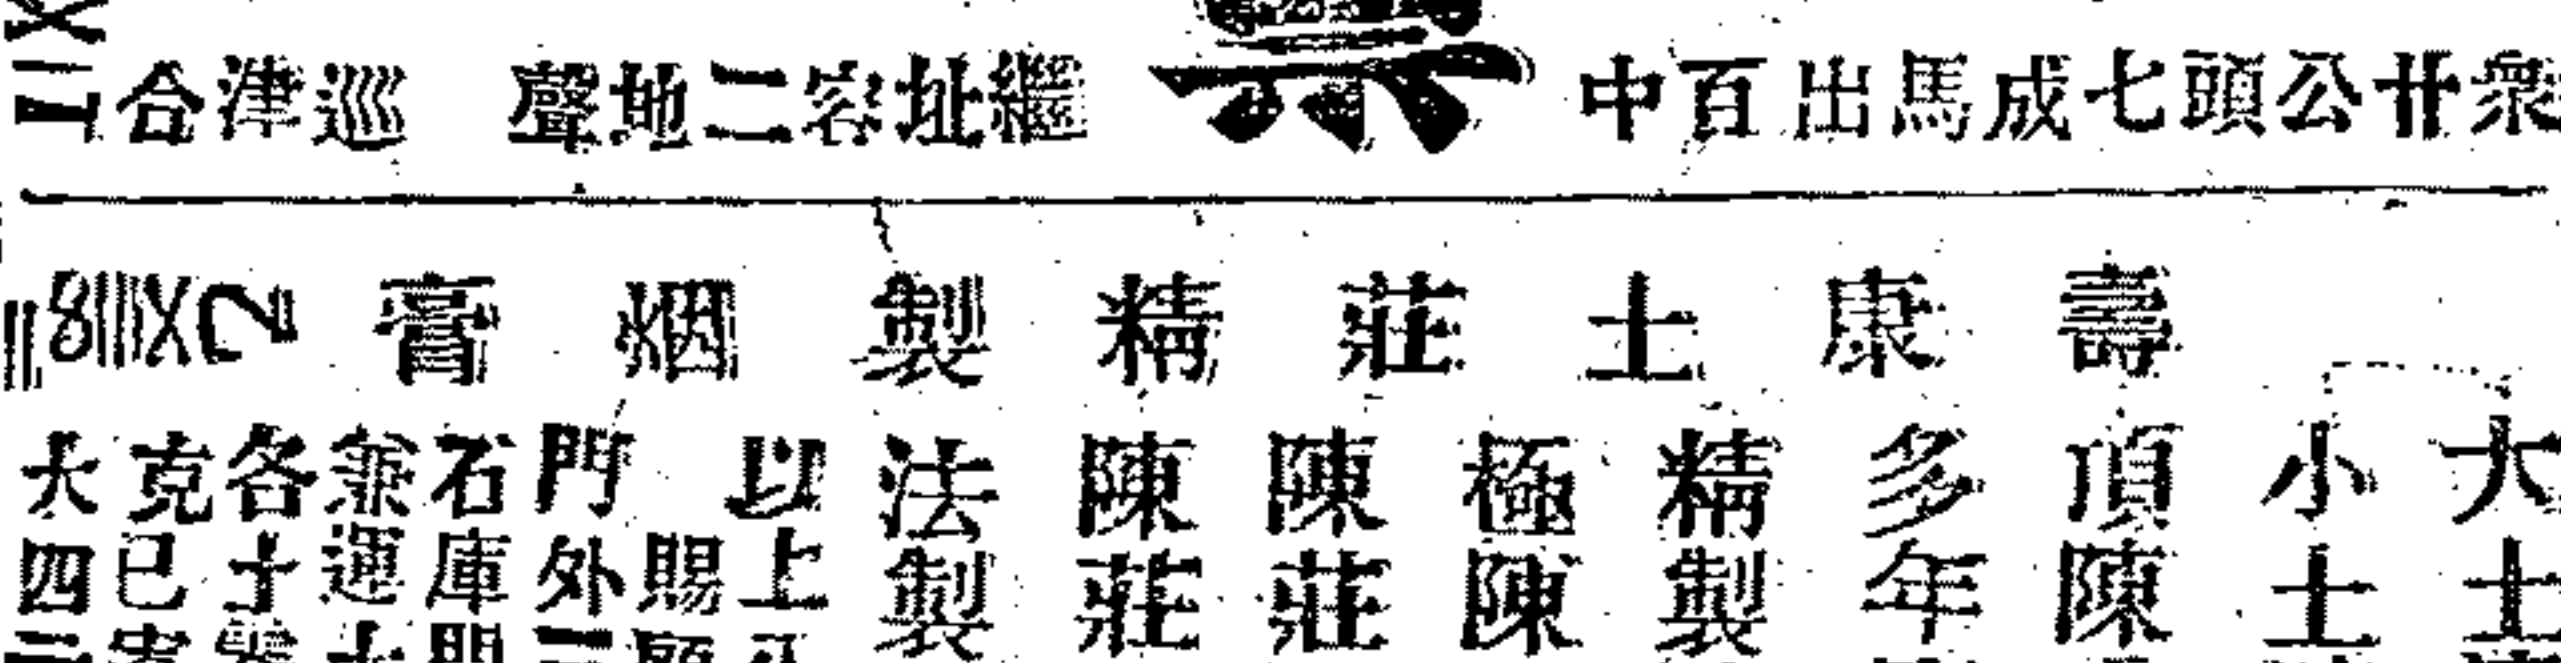 衆
廿
公
頭
七
成
馬
出
百
中
票
繼
址
容
二
地
聲
巡
津
合
壽康土莊精製烟膏
大土
小土
頂陳
多年
精製
極陳
陳莊
陳莊
法製
以上
賜顧
門外三
石庫門
兼運土
各土
克已
大四二